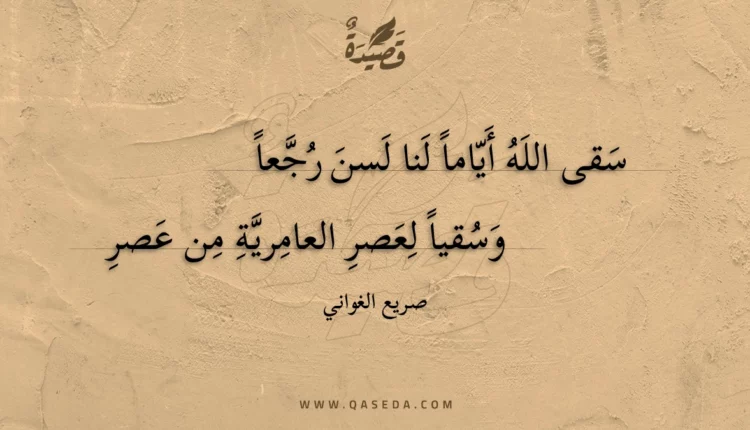 قَصِيدَةٌ
سَقى اللَهُ أَيّاماً لَنا لَسنَ رُجَّعاً
وَسُقياً لِعَصرِ العامِريَّةِ مِن عَصرِ
صريع الغواني
WWW.QASEDA.COM